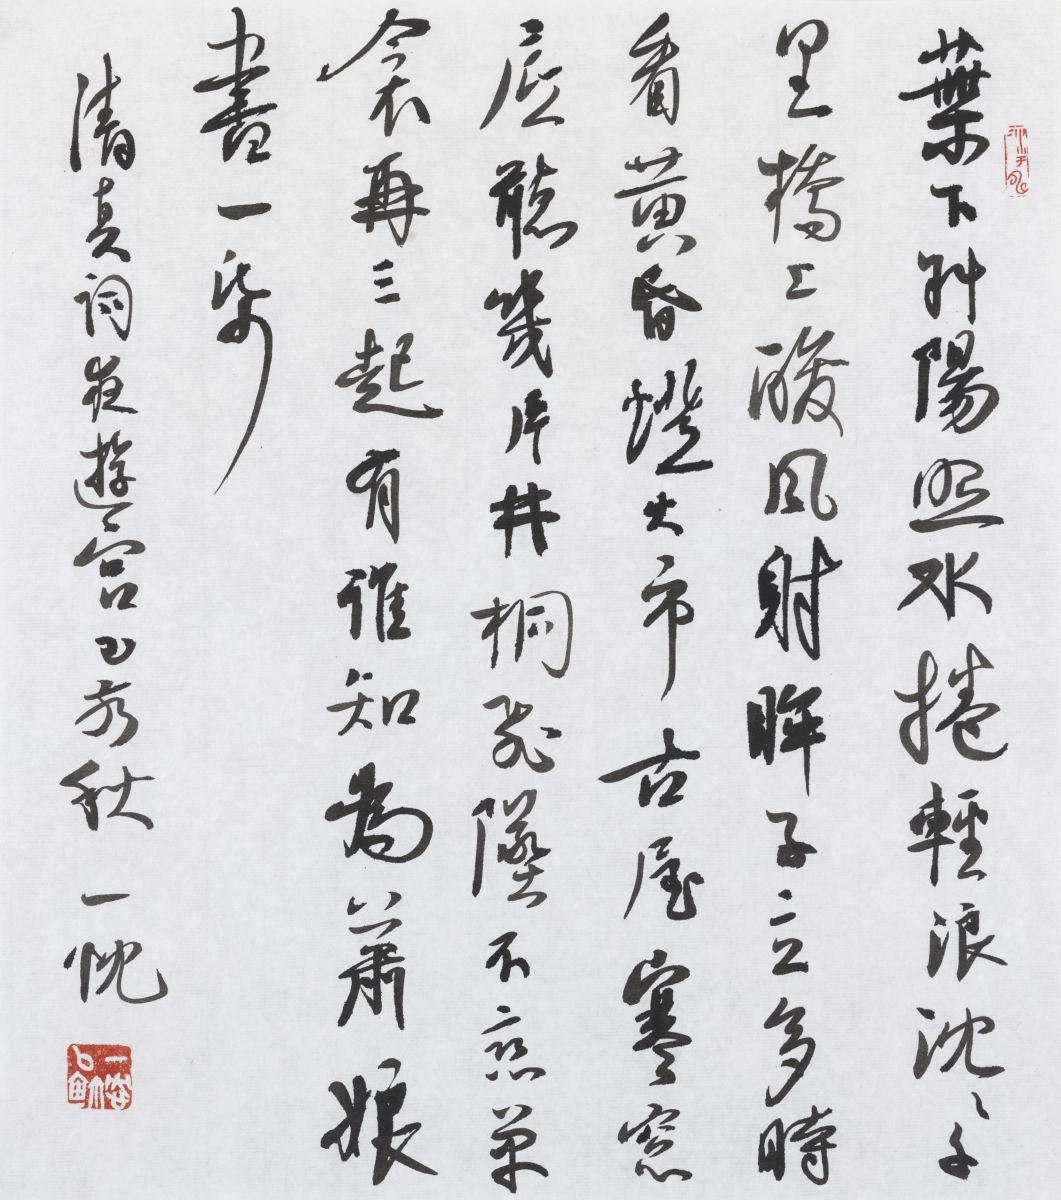 葉下斜陽照水捲輕浪沈沈千
里橋上酸風射眸子立多時
看黃昏燈火市古屋寒窗
底聽幾片井桐飛墜不恋單
衾再三起有誰知為蕭娘
書一紙
清真詞夜遊宮己亥秋 一忱